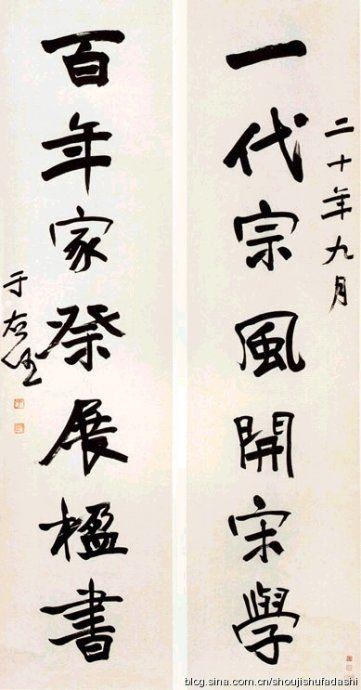 一代宗風開宋學
二十年九月
百年家祭展楹書
于右任
blog.sina.com.cn/shoujishufadashi